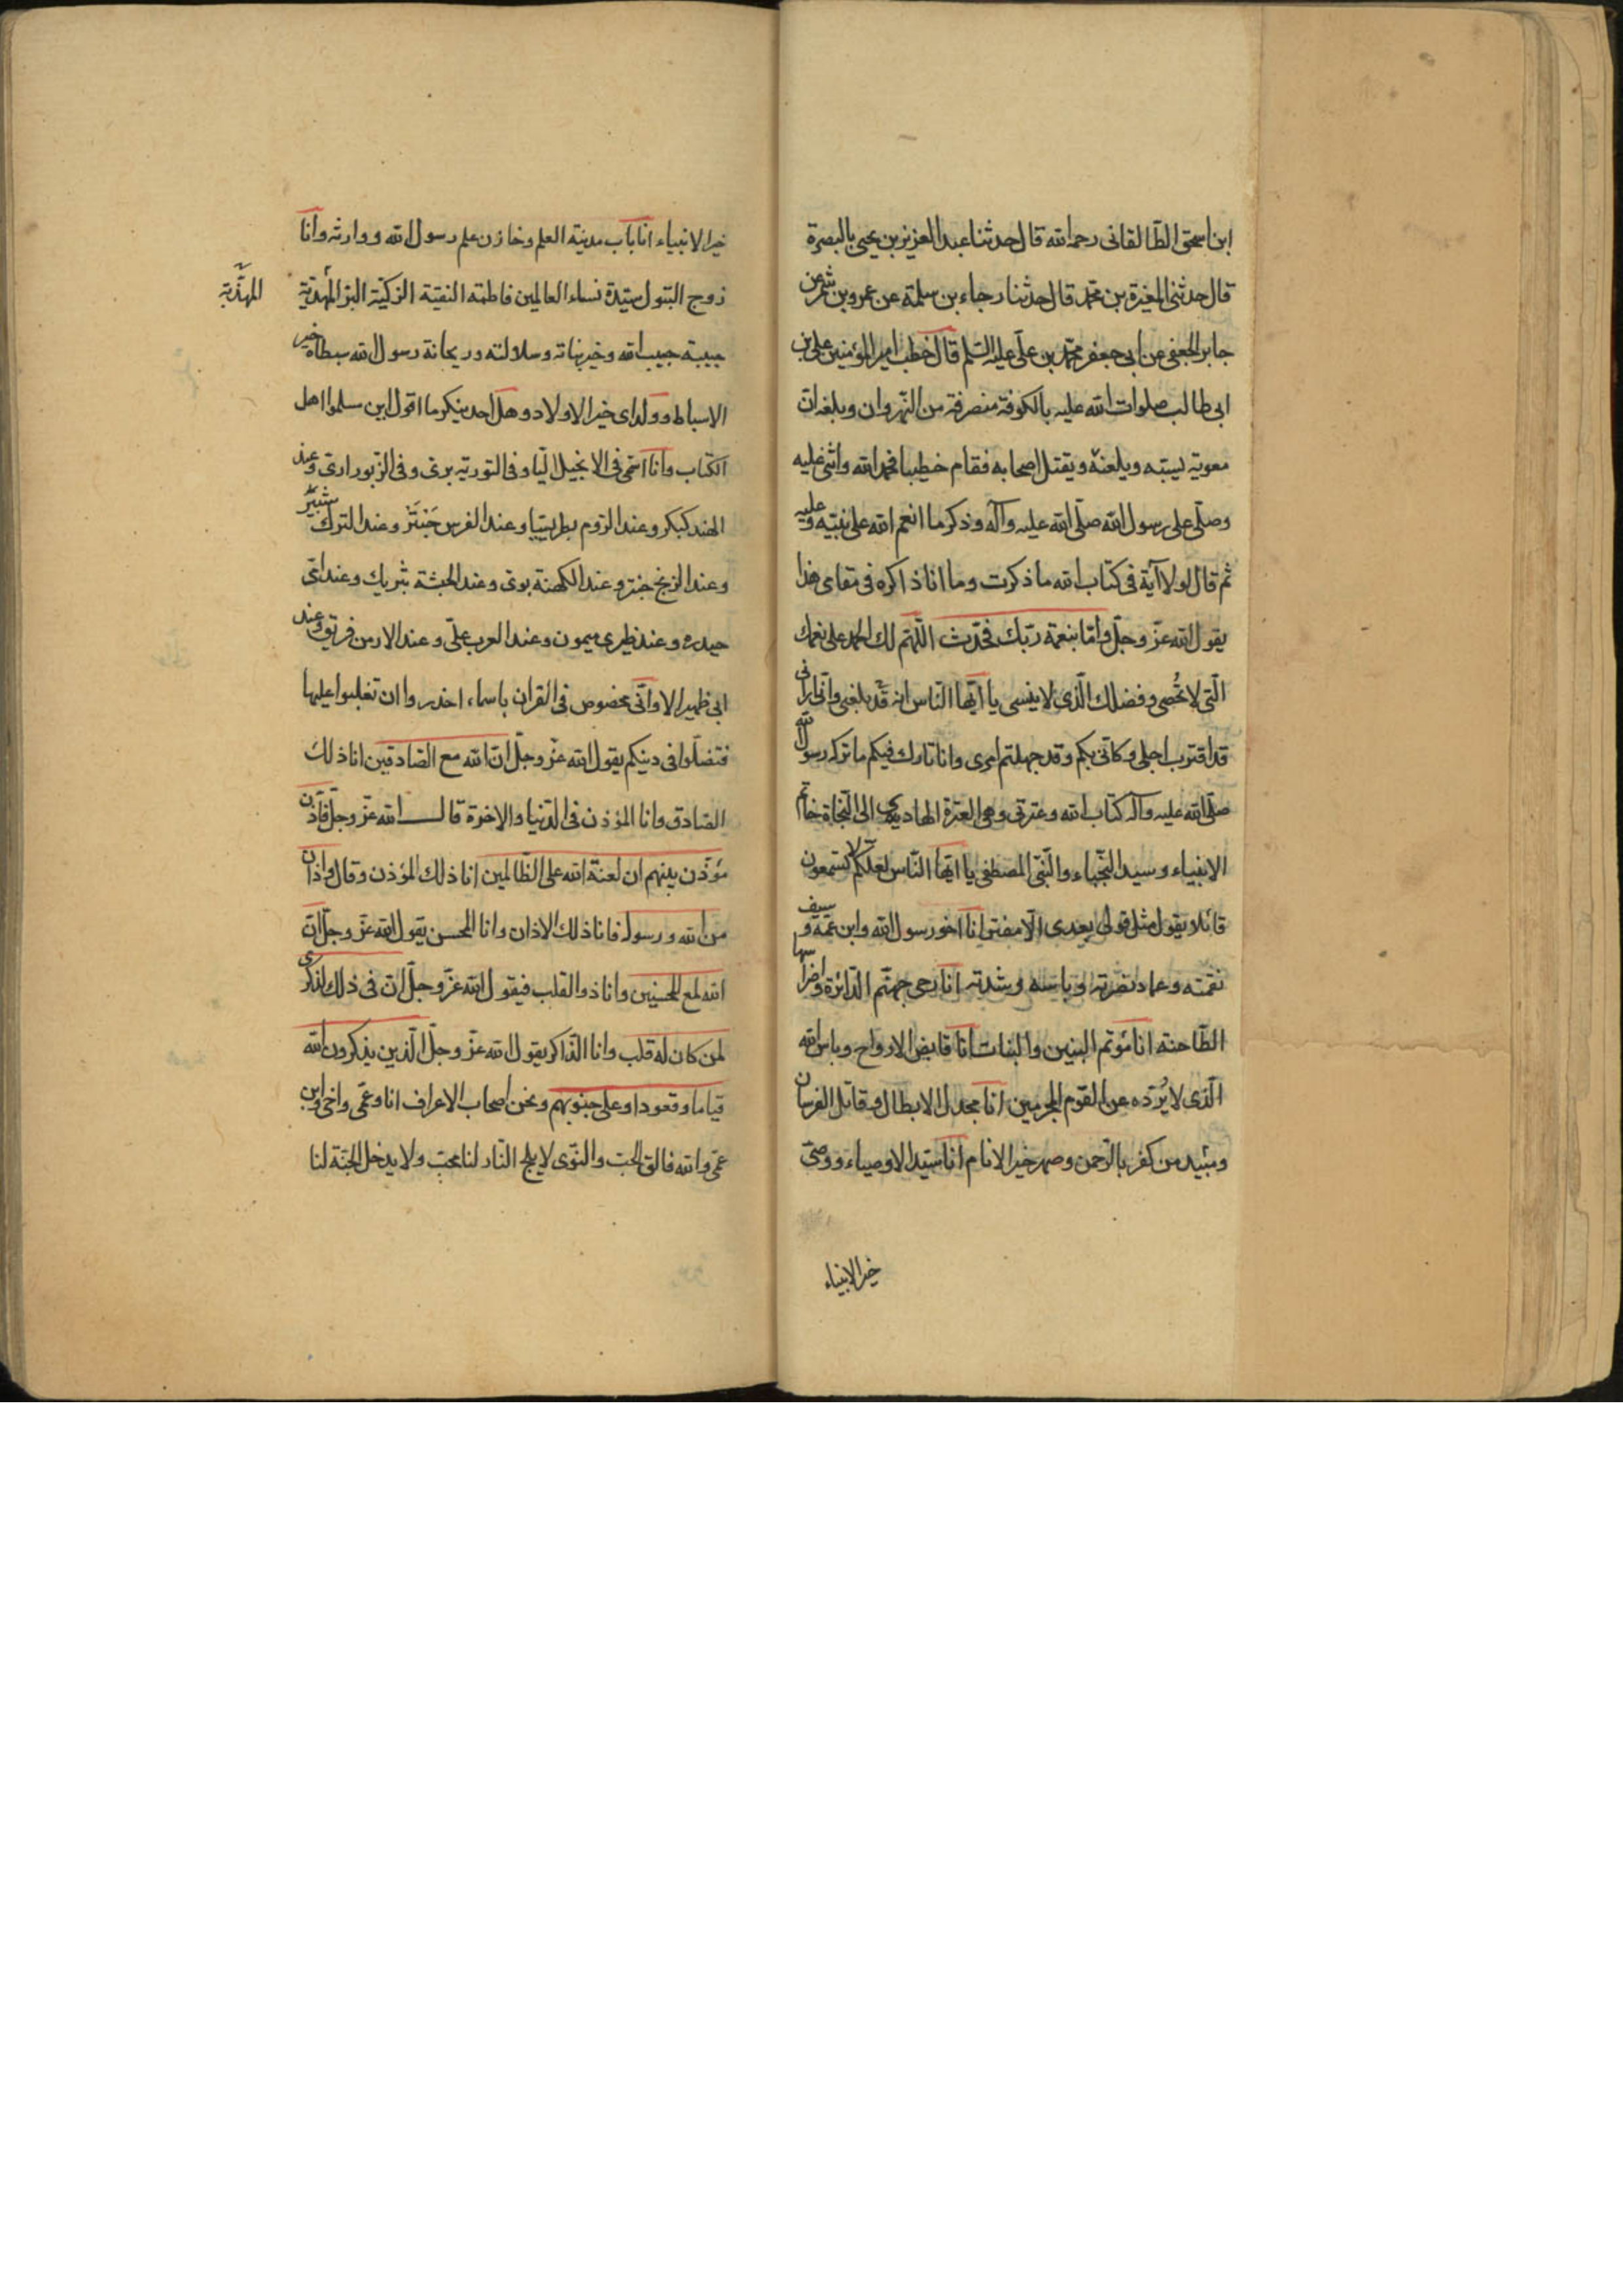 ابن اسحق الطّالقانی رحمه الله قال حدثنا عبد العزیز بن یحیی بالبصرة
قال حدثنی المغیرة بن محمّد قال حدثنا رجاء بن سلمة عن عمرو بن شمر عن
جابر الجعفی عن ابی جعفر محمّد بن علّی علیه السّلم قال خطب امیر المؤمنین علی بن
ابی طالب صلوات الله علیه بالکوفة منصرفة من النّهروان وبلغه ان
معویة یسبّه ویلعنه ویقتل اصحابه فقام خطیبا فحمد الله واثنی علیه
وصلّی علی رسول الله صلّی الله علیه وآله وذکر ما انعم الله علی نبیّه وعلیه
ثم قال لولا آیة فی کتاب الله ما ذکرت وما انا ذاکره فی مقامی هذا
یقول الله عزّ وجلّ وامّا بنعمة ربّك فحدّث اللّهم لك الحمد علی نعمك
الّتی لا تُحصی وفضلك الّذی لا ینسی یا ایّها النّاس انه قد بلغنی وانّی ارانی
قد اقترب اجلی وکانّی بکم وقد جهلتم امری وانا تارك فیکم ما ترکه رسول الله
صلّی الله علیه وآله کتاب الله وعترتی وهی العترة الهادیة الی النّجاة خاتم
الانبیاء وسید النّجباء والنّبیّ المصطفی یا ایّها النّاس لعلّکم لا تسمعون
قائلا یقول مثل قولی بعدی الّا مفتر انا اخو رسول الله وابن عمّه وسیف
نقمته وعماد نصرته وباسه وشدته انا رحی جهنّم الدّائرة واضراسها
الطّاحنة انا مؤتم البنین والبنات انا قابض الارواح وباس الله
الّذی لا یُردّه عن القوم المجرمین انا مجدل الابطال وقاتل الفرسان
ومبید من کفر بالرّحمن وصهر خیر الانام انا سیّد الاوصیاء ووصیّ
خیر الانبیاء
خیر الانبیاء انا باب مدینة العلم وخازن علم رسول الله ووارثه وانا
زوج البتول سیّدة نساء العالمین فاطمة النقیّة الزکیّة البرّ المهدیّة
المهدّیة
حبیبة حبیب الله وخیر بناته وسلالته وریحانة رسول الله سبطاه خیر
الاسباط وولدای خیر الاولاد وهل احد ینکر ما اقول این سلموا اهل
الکتاب وانا اسمی فی الانجیل الیّا وفی التوریة بری وفی الزّبور اری وعند
الهند کبکر وعند الرّوم بطریسا وعند الفرس جَنتَر وعند الترك شبیر
وعند الزنج حنتر وعند الکهنة بوی وعند الحبشة بثریك وعند امّی
حیدره وعند ظیری میمون وعند العرب علّی وعند الارمن فریق وعند
ابی ظهیر الا وانّی مخصوص فی القران باسماء احذروا ان تغلبوا علیها
فتضلّوا فی دینکم یقول الله عزّ وجلّ انّ الله مع الصّادقین انا ذلك
الصّادق وانا المؤذن فی الدّنیا والاخرة قال الله عزّ وجلّ فاذّن
مؤذّن بینهم ان لعنة الله علی الظّالمین انا ذلك المؤذن وقال واذان
من الله ورسوله فانا ذلك الاذان وانا المحسن یقول الله عزّ وجلّ انّ
الله لمع المحسنین وانا ذو القلب فیقول الله عزّ وجلّ انّ فی ذلك لذکری
لمن کان له قلب وانا الذّاکر یقول الله عزّ وجلّ الّذین یذکرون الله
قیاما وقعودا وعلی جنوبهم ونحن اصحاب الاعراف انا وعمّی واخی وابن
عمّی والله فالق الحبّ والنّوی لا یلج النّار لنا محبّ ولا یدخل الجنّة لنا